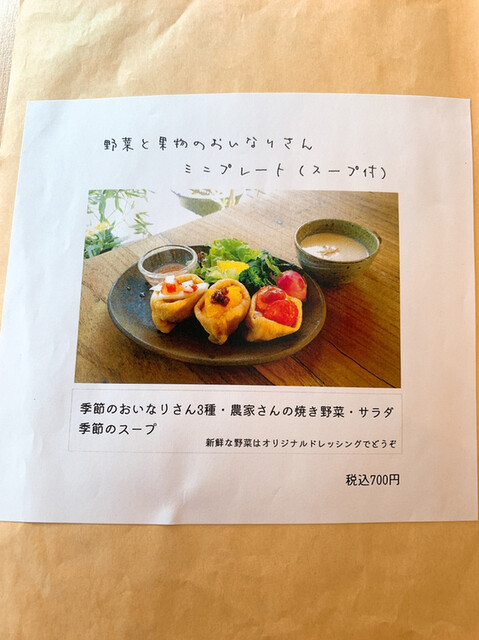 野菜と果物のおいなりさん
ミニプレート（スープ付）
季節のおいなりさん3種・農家さんの焼き野菜・サラダ
季節のスープ
新鮮な野菜はオリジナルドレッシングでどうぞ
税込700円